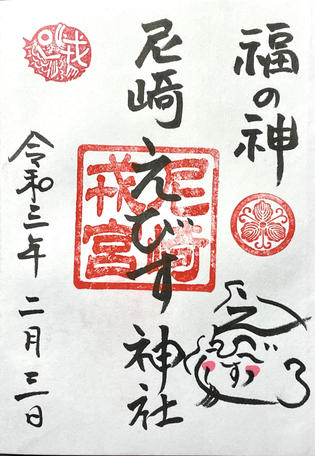 福の神
尼崎えびす神社
尼崎
戎宮
令和三年二月三日
戎
えびす